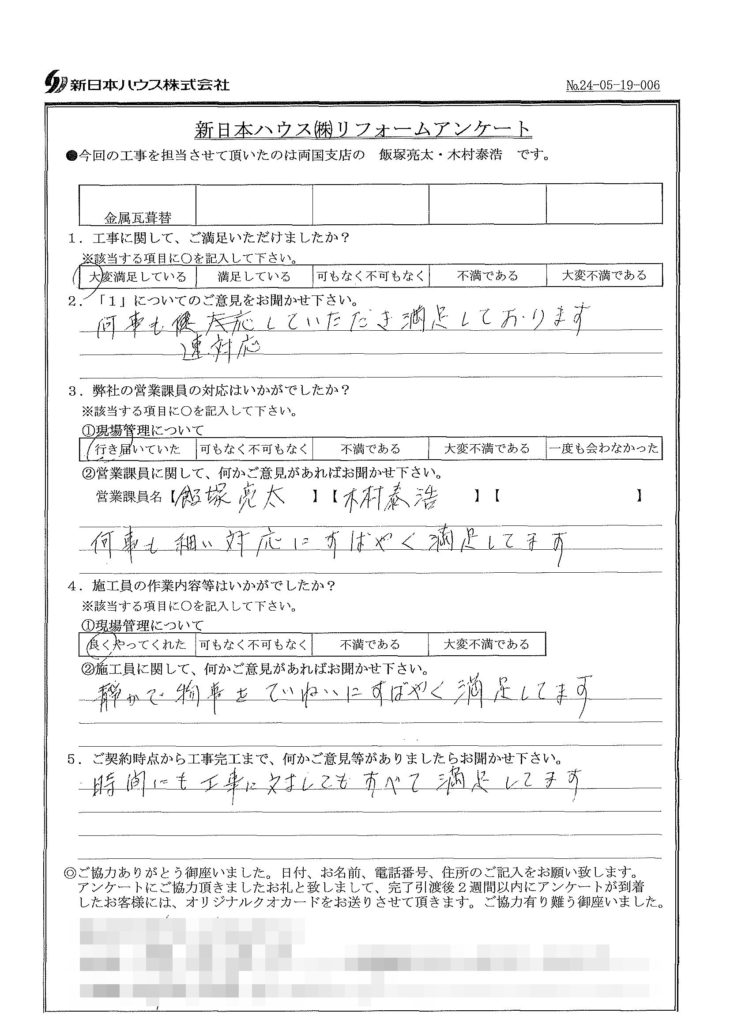 新日本ハウス株式会社
№24-05-19-006
新日本ハウス㈱リフォームアンケート
●今回の工事を担当させて頂いたのは両国支店の 飯塚亮太・木村泰浩 です。
金属瓦葺替
1．工事に関して、ご満足いただけましたか？
※該当する項目に○を記入して下さい。
大変満足している 満足している 可もなく不可もなく 不満である 大変不満である
2．「1」についてのご意見をお聞かせ下さい。
何事も 応していただき満足しております
速対応
3．弊社の営業課員の対応はいかがでしたか？
※該当する項目に○を記入して下さい。
①現場管理について
行き届いていた 可もなく不可もなく 不満である 大変不満である 一度も会わなかった
②営業課員に関して、何かご意見があればお聞かせ下さい。
営業課員名【飯塚亮太 】【木村泰浩 】【 】
何事も細い対応にすばやく満足してます
4．施工員の作業内容等はいかがでしたか？
※該当する項目に○を記入して下さい。
①現場管理について
良くやってくれた 可もなく不可もなく 不満である 大変不満である
②施工員に関して、何かご意見があればお聞かせ下さい。
静かで物事をていねいにすばやく満足してます
5．ご契約時点から工事完工まで、何かご意見等がありましたらお聞かせ下さい。
時間にも工事に対してもすべて満足してます
◎ご協力ありがとう御座いました。日付、お名前、電話番号、住所のご記入をお願い致します。
アンケートにご協力頂きましたお礼と致しまして、完了引渡後２週間以内にアンケートが到着
したお客様には、オリジナルクオカードをお送りさせて頂きます。ご協力有り難う御座いました。